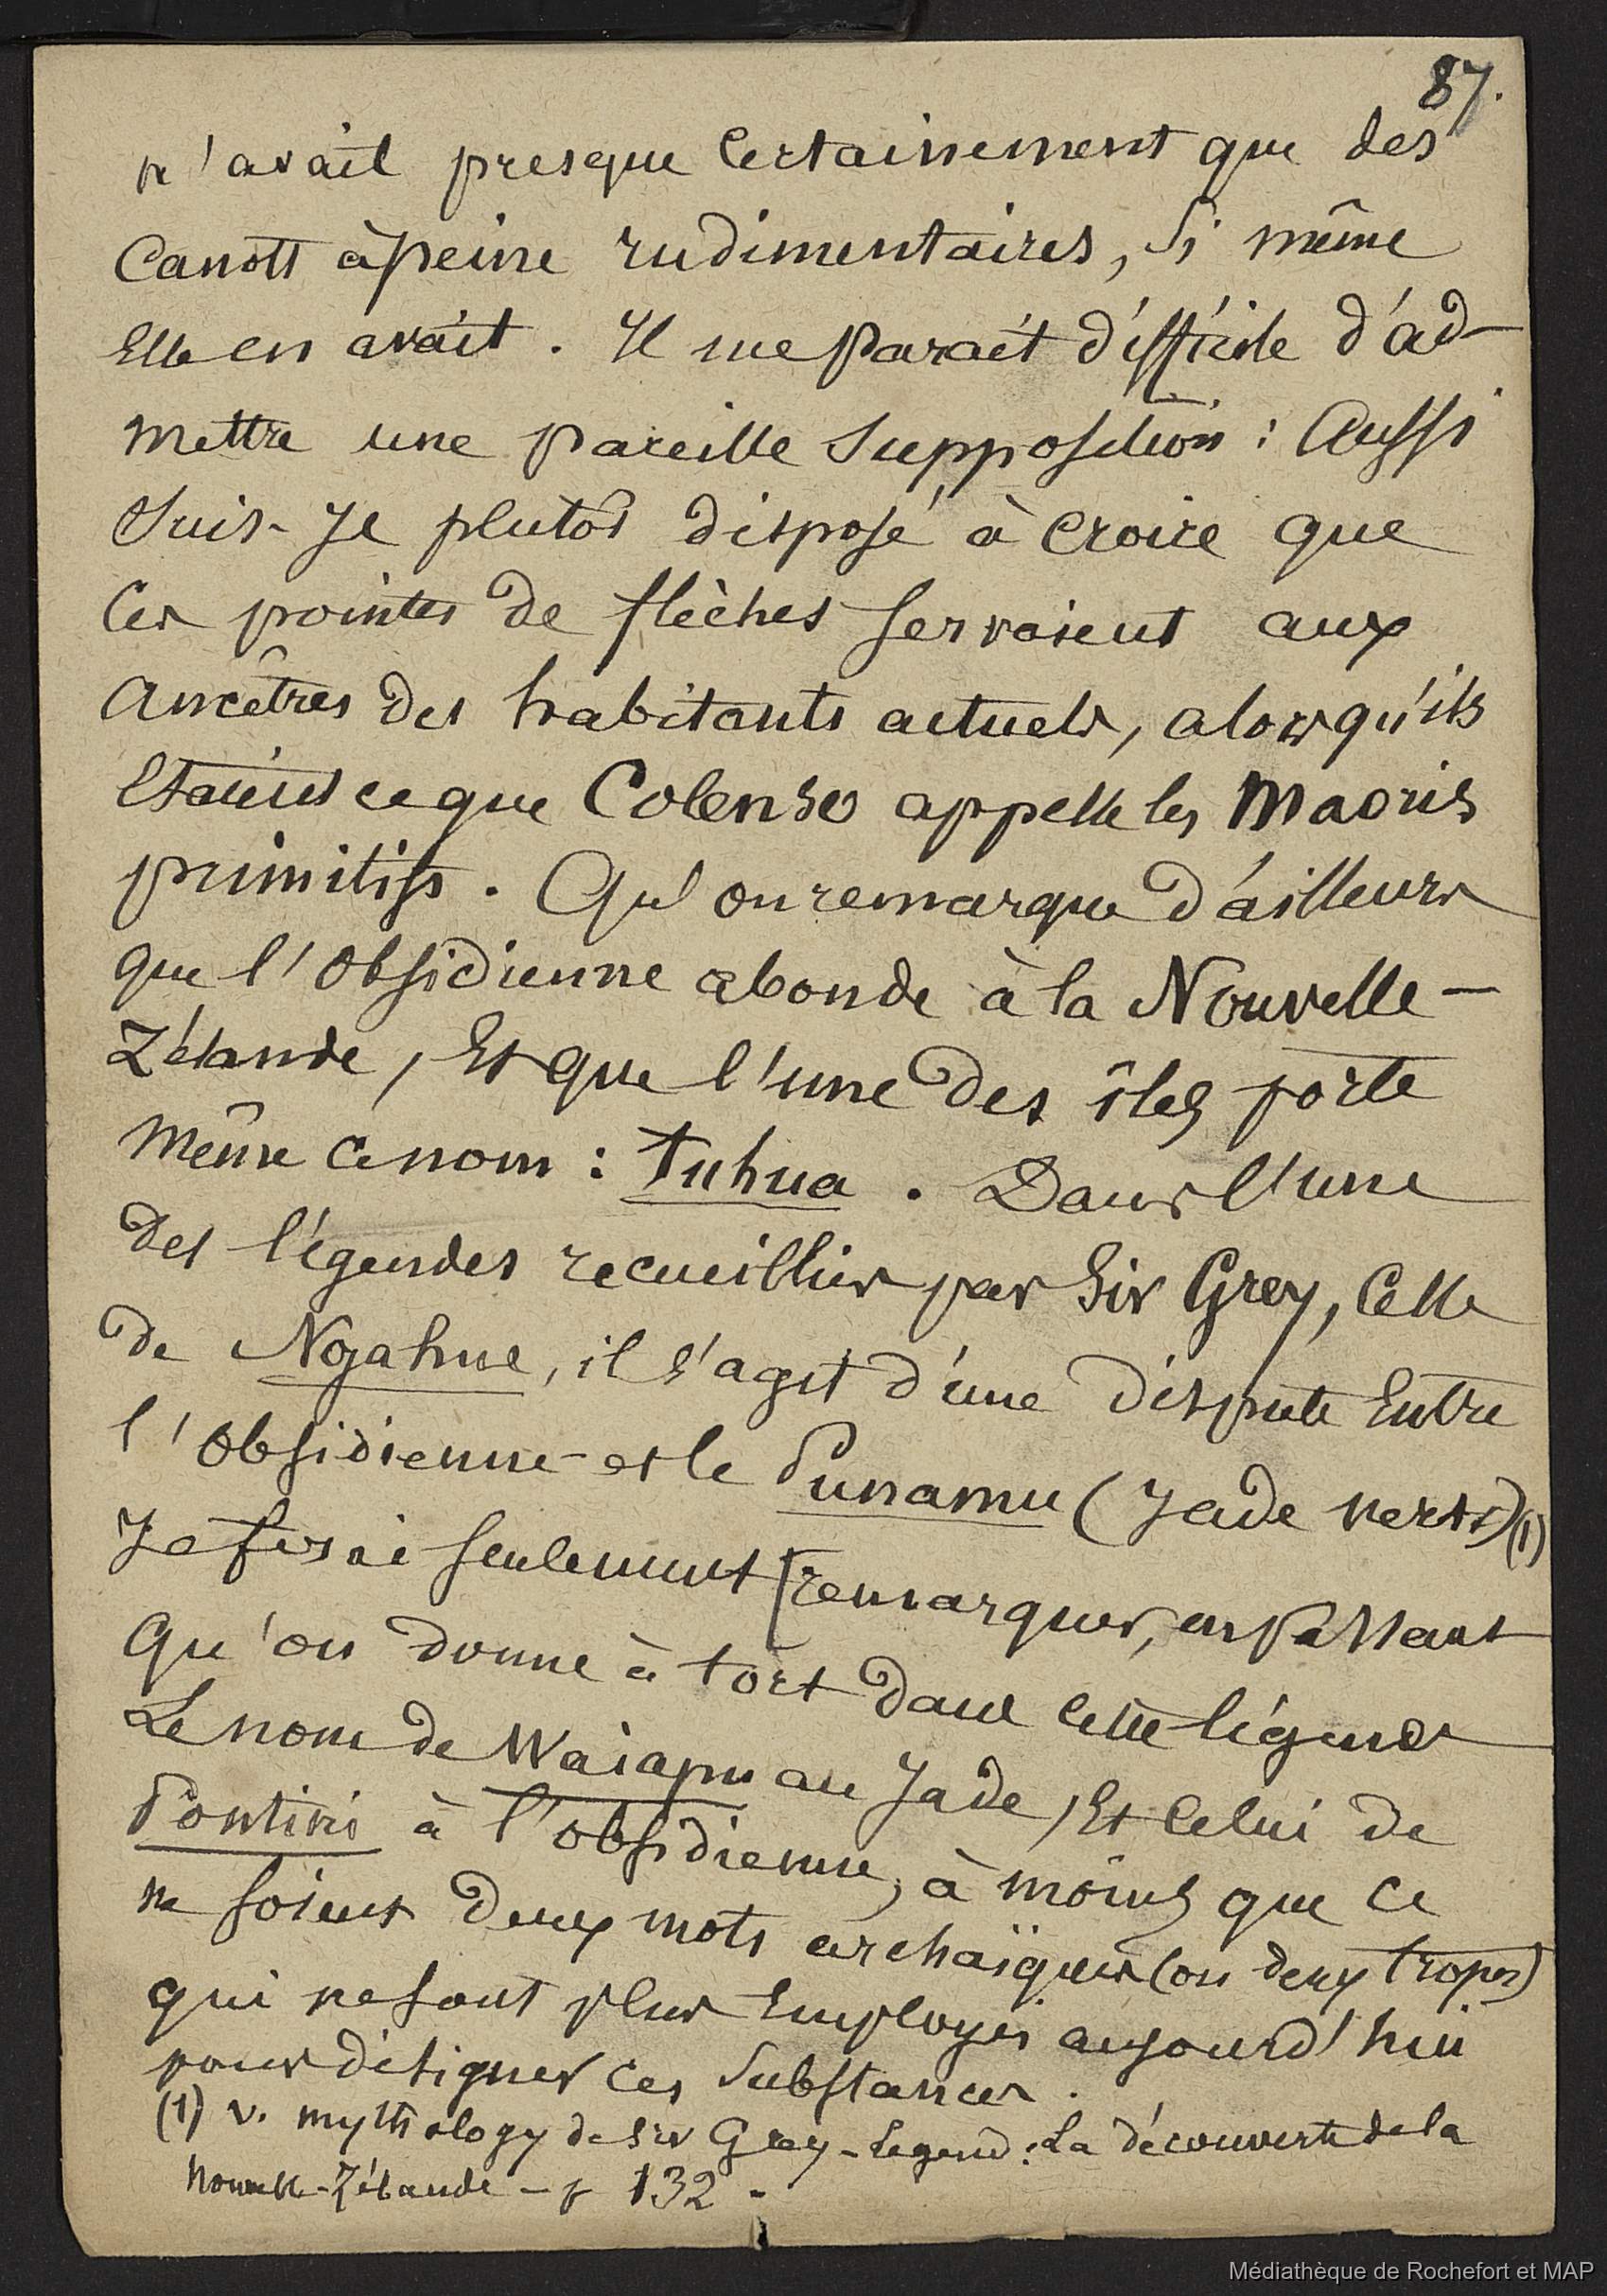 87.
n'avait presque certainement que des
canots à peine rudimentaires, si même
elle en avait. Il me parait difficile d'ad-
mettre une pareille supposition : Aussi
suis-je plutôt disposé à croire que
ces pointes de flèches servaient aux
ancêtres des habitants actuels, alors qu'ils
étaient ce que Colenso appelle les Maoris
primitifs. Qu'on remarque d'ailleurs
que l'obsidienne abonde à la Nouvelle-
Zélande, et que l'une des îles porte
même ce nom : Tuhua. Dans l'une
des légendes recueillies par Sir Grey, celle
de Ngahue, il s'agit d'une dispute entre
l'obsidienne et le Punamu (Jade vert) (1)
Je ferai seulement [remarquer, en passant
qu'on donne à tort dans cette légende
le nom de Waiapu au Jade, et celui de
Poutini à l'obsidienne, à moins que ce
ne soient deux mots archaïques (ou deux tropes)
qui ne sont plus employés aujourd'hui
pour désigner ces substances.
(1) v. mythology de Sir Grey - Legend : La découverte de la
Nouvelle-Zélande - p 132.
Médiathèque de Rochefort et MAP